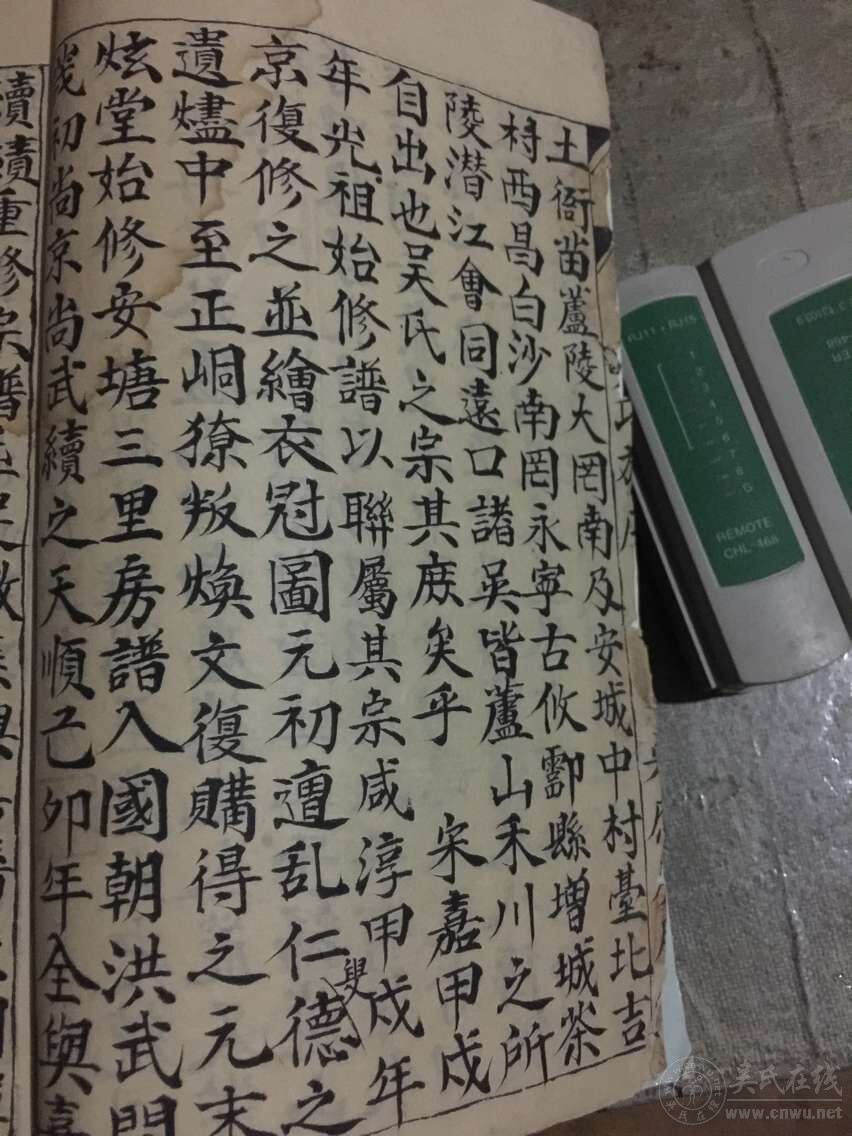 土衙苗蘆陵大罔南及安城中村臺北吉
村西昌白沙南罔永寧古攸酃縣增城茶
陵潜江會同遠口諸吴皆蘆山禾川之所
自出也吴氏之宗其庶矣乎 宋嘉甲戍
年光祖始修譜以聯屬其宗咸淳甲戍年
京復修之並繪衣冠圖元初遭乱仁德之
叟
遺燼中至正峒獠叛煥文復購得之元末
炫堂始修安塘三里房譜入國朝洪武間
幾初尚京尚武續之天順己卯年全與
RJ11・RJ45
1
2
3
4
5
6
7
8
G
REMOTE
CHL-468
吴氏在线
www.cnwu.net